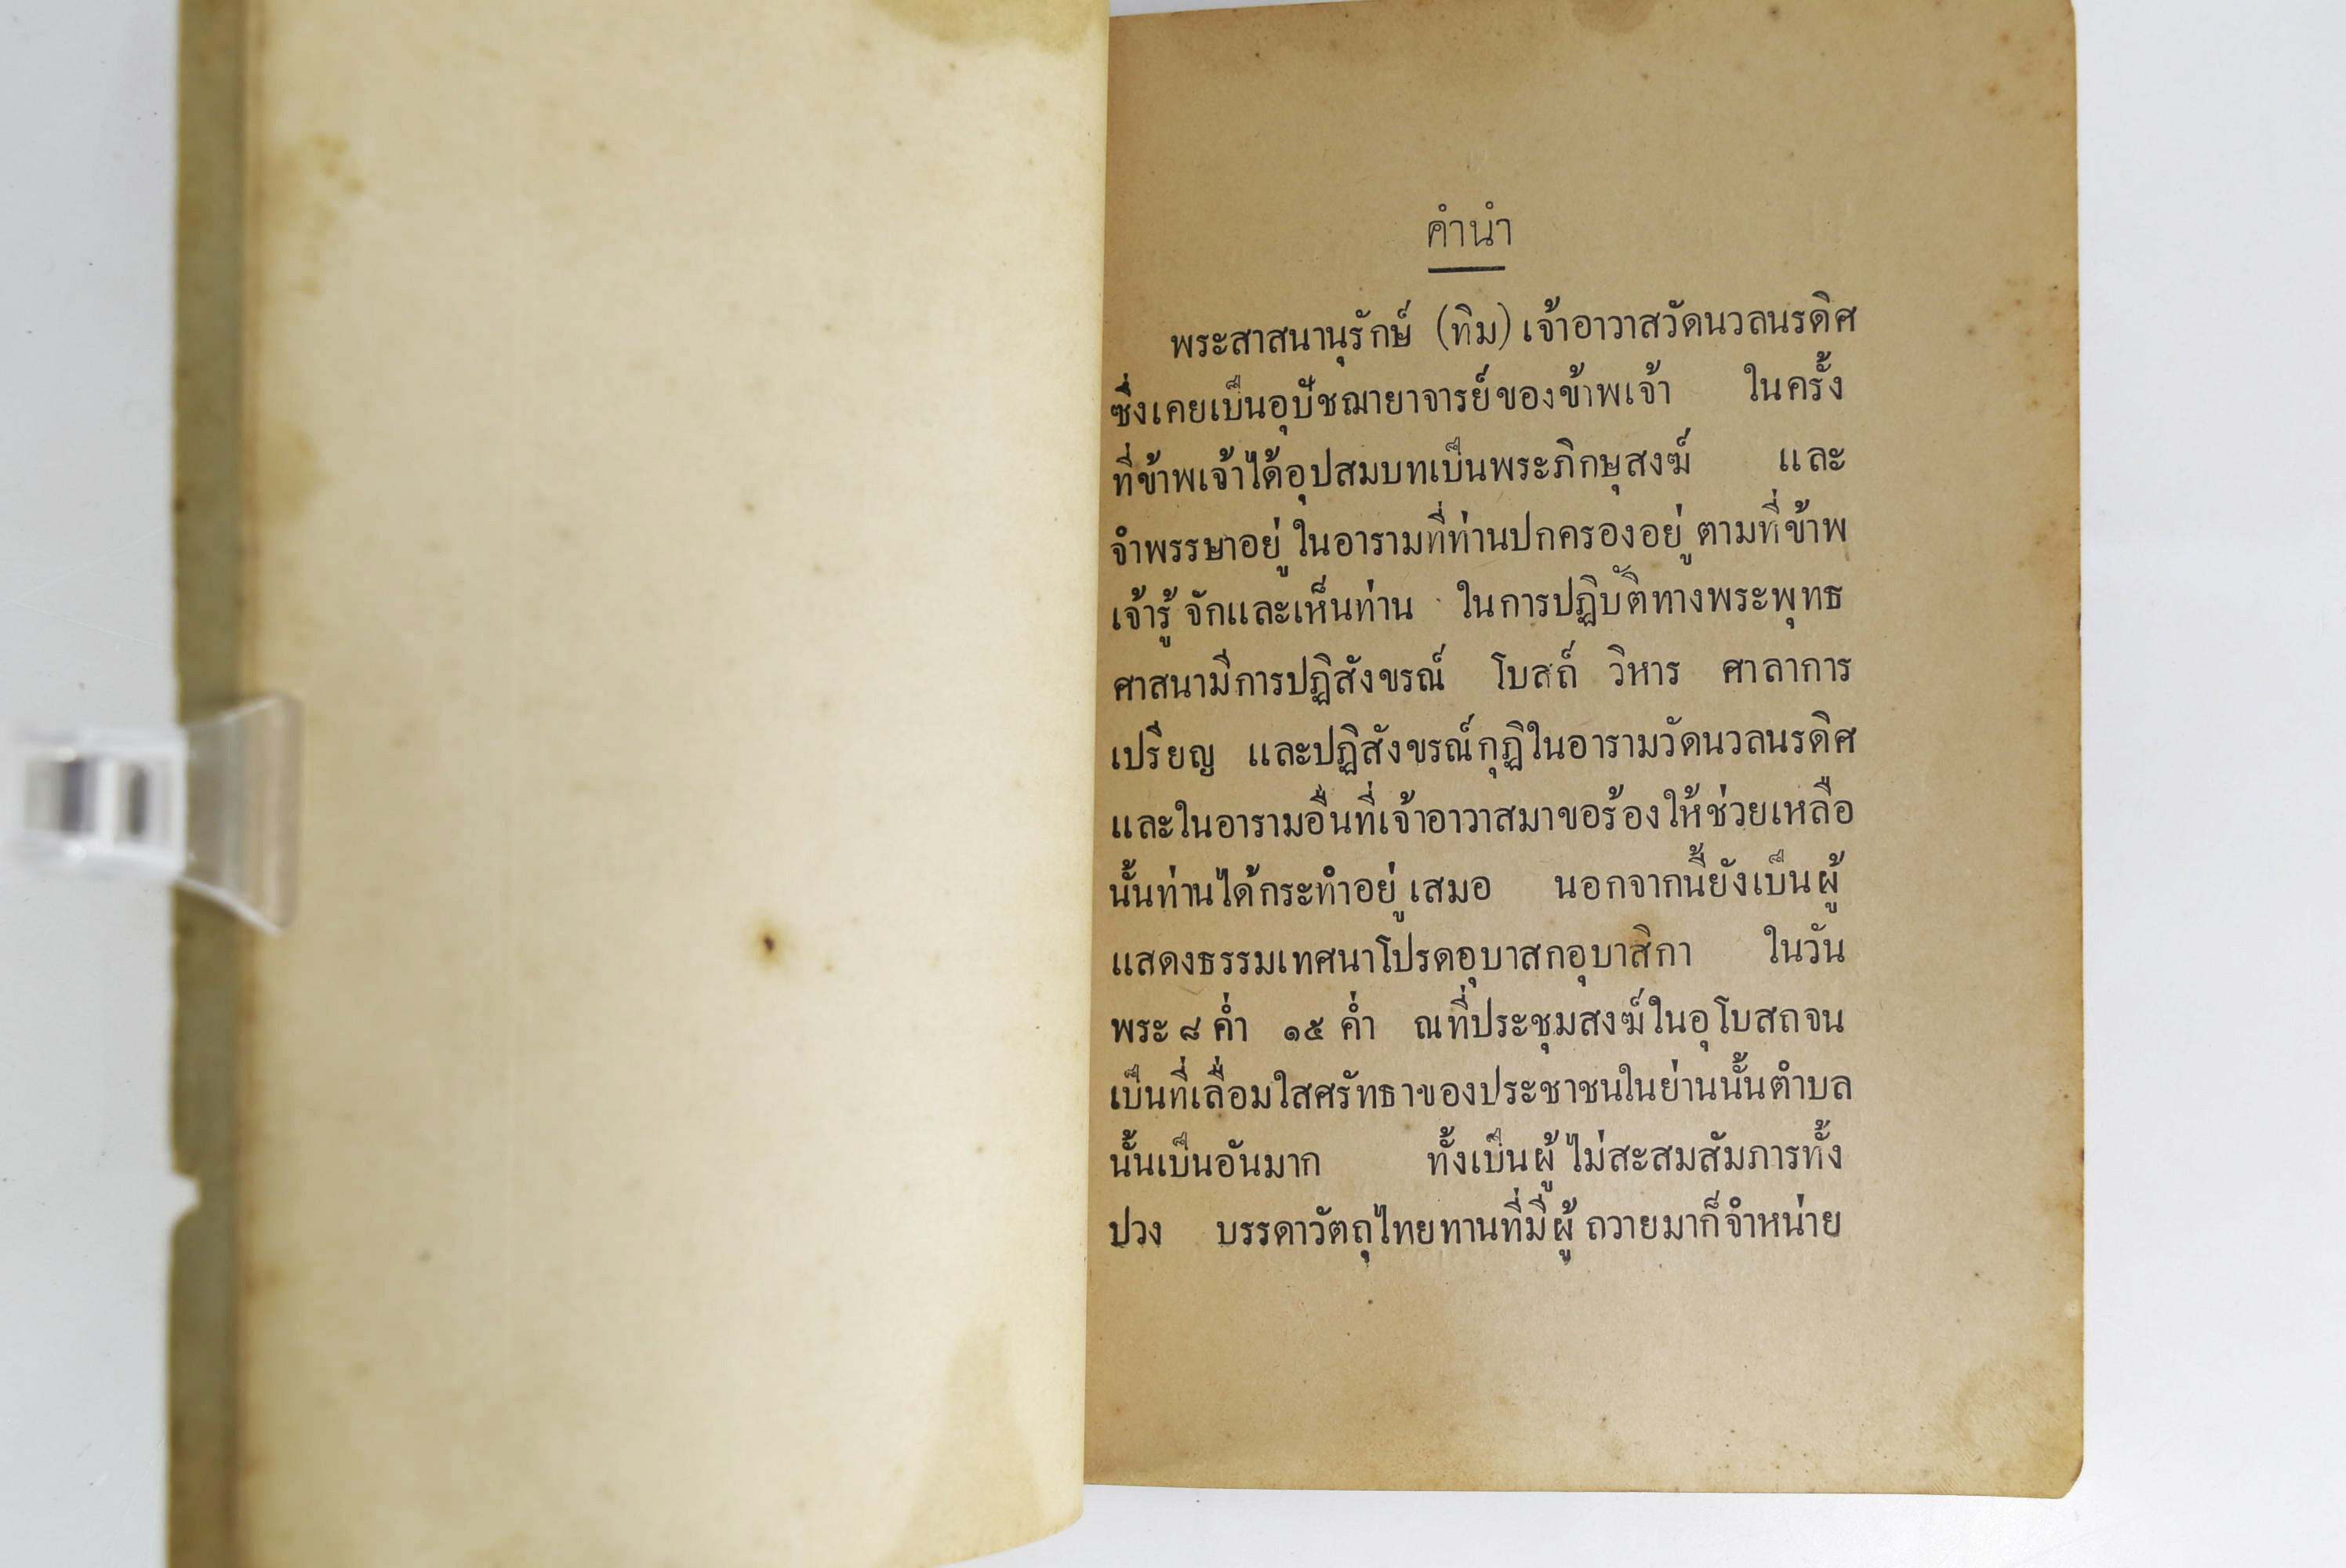 คำนำ
พระสาสนานุรักษ์ (ทิม) เจ้าอาวาสวัดนวลนรดิศ
ซึ่งเคยเป็นอุปัชฌายาจารย์ของข้าพเจ้า ในครั้ง
ที่ข้าพเจ้าได้อุปสมบทเป็นพระภิกษุสงฆ์ และ
จำพรรษาอยู่ในอารามที่ท่านปกครองอยู่ ตามที่ข้าพ
เจ้ารู้จักและเห็นท่าน ในการปฏิบัติทางพระพุทธ
ศาสนามีการปฏิสังขรณ์ โบสถ์ วิหาร ศาลาการ
เปรียญ และปฏิสังขรณ์กุฏิในอารามวัดนวลนรดิศ
และในอารามอื่นที่เจ้าอาวาสมาขอร้องให้ช่วยเหลือ
นั้นท่านได้กระทำอยู่เสมอ นอกจากนี้ยังเป็นผู้
แสดงธรรมเทศนาโปรดอุบาสกอุบาสิกา ในวัน
พระ ๘ ค่ำ ๑๕ ค่ำ ณที่ประชุมสงฆ์ในอุโบสถจน
เป็นที่เลื่อมใสศรัทธาของประชาชนในย่านนั้นตำบล
นั้นเป็นอันมาก ทั้งเป็นผู้ไม่สะสมสัมภารทั้ง
ปวง บรรดาวัตถุไทยทานที่มีผู้ถวายมาก็จำหน่าย